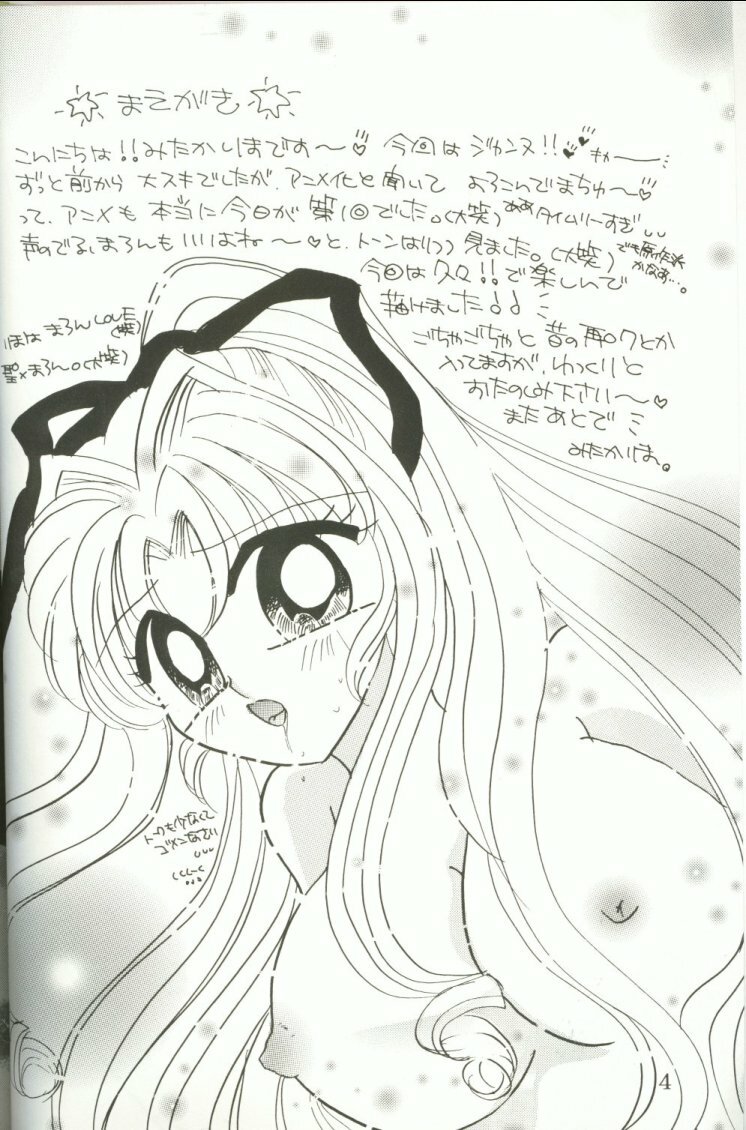 まえがき
こんにちは!!みたかしほです〜♡ 今回はジャンヌ!!♥♥ きゃー
ずっと前から 大スキでしたが、アニメ化と聞いて よろこんでまちゅ〜♡
って、アニメも 本当に今日が 第1回でした。(大笑) ああタイムリーすぎ
声のでるまろんもいいはね〜♡と、トーンはりつつ見ました。(大笑)
今回は久々!!で楽しんで
描けました!!
ごちゃごちゃと昔の再ロクとか
入ってますが、ゆっくりと
おたのしみ下さい〜♡
またあとで
みたかしほ。
しほは まろんLOVE
(笑)
聖×まろん。(大笑)
トークも少なくて
ゴメンなさい
4